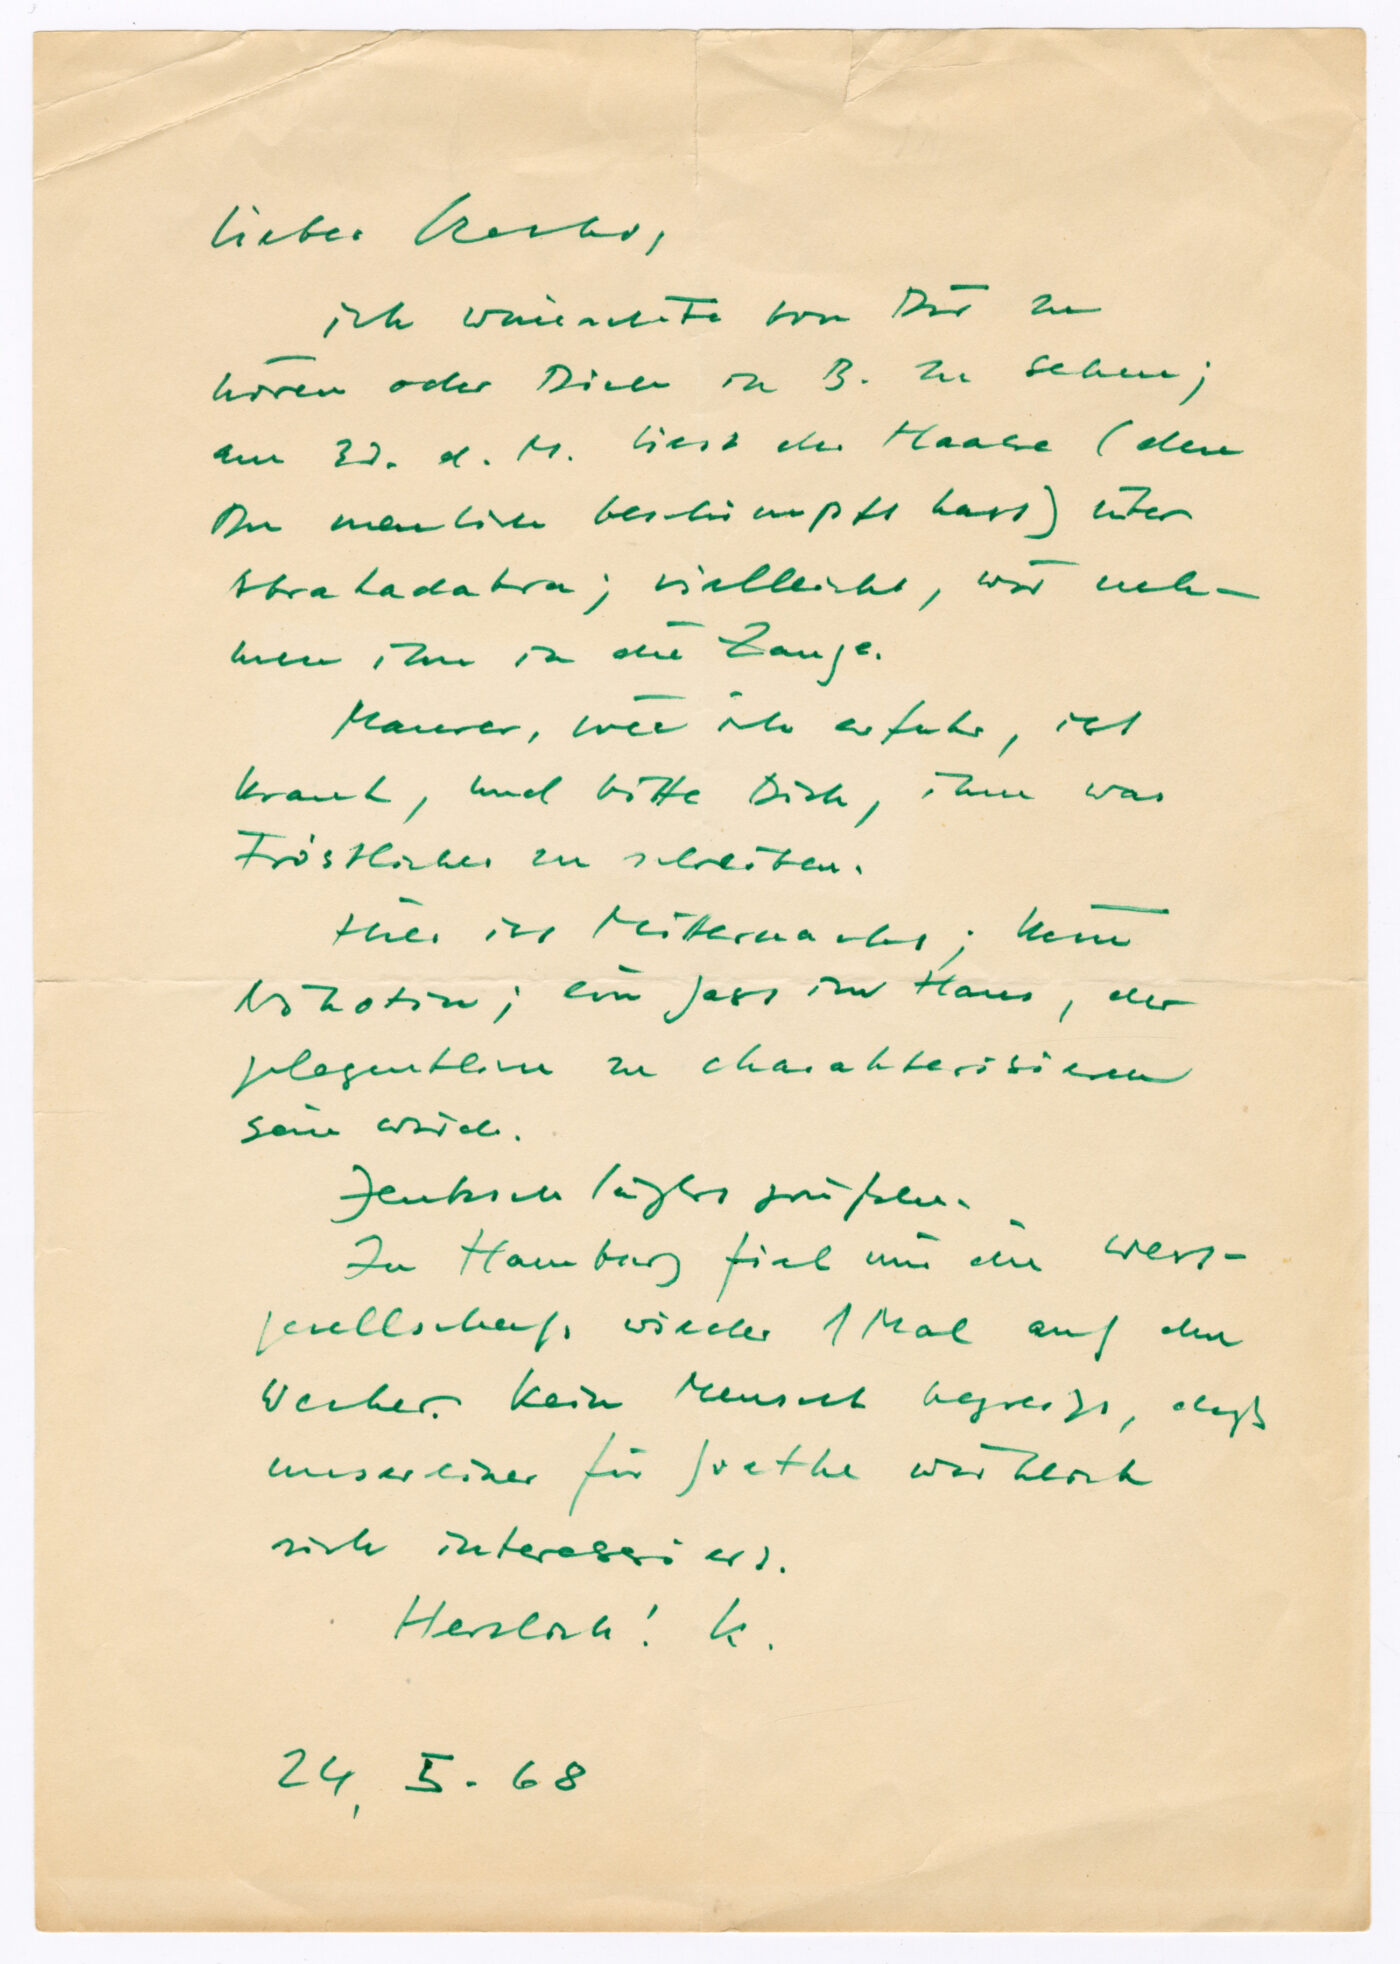 Lieber Czecho,
ich wünschte von Dir zu
hören oder Dich in B. zu sehen;
am 30. d. M. liest der Haase (den
Du neulich beschimpft hast) über
Abrakadabra; vielleicht, wir neh-
men ihn in die Zange.
Maurer, wie ich erfuhr, ist
krank, und bitte Dich, ihm was
Tröstliches zu schreiben.
Hier ist Mitternacht; kein
Nikotin; ein Gast im Haus, der
gelegentlich zu charakterisieren
sein wird.
Jentzsch läßt grüßen.
In Hamburg fiel mir die West-
gesellschaft wieder 1 Mal auf den
Wecker. Kein Mensch begreift, daß
unsereiner für Goethe wirklich
sich interessiert.
Herzlich! K.
24. V. 68